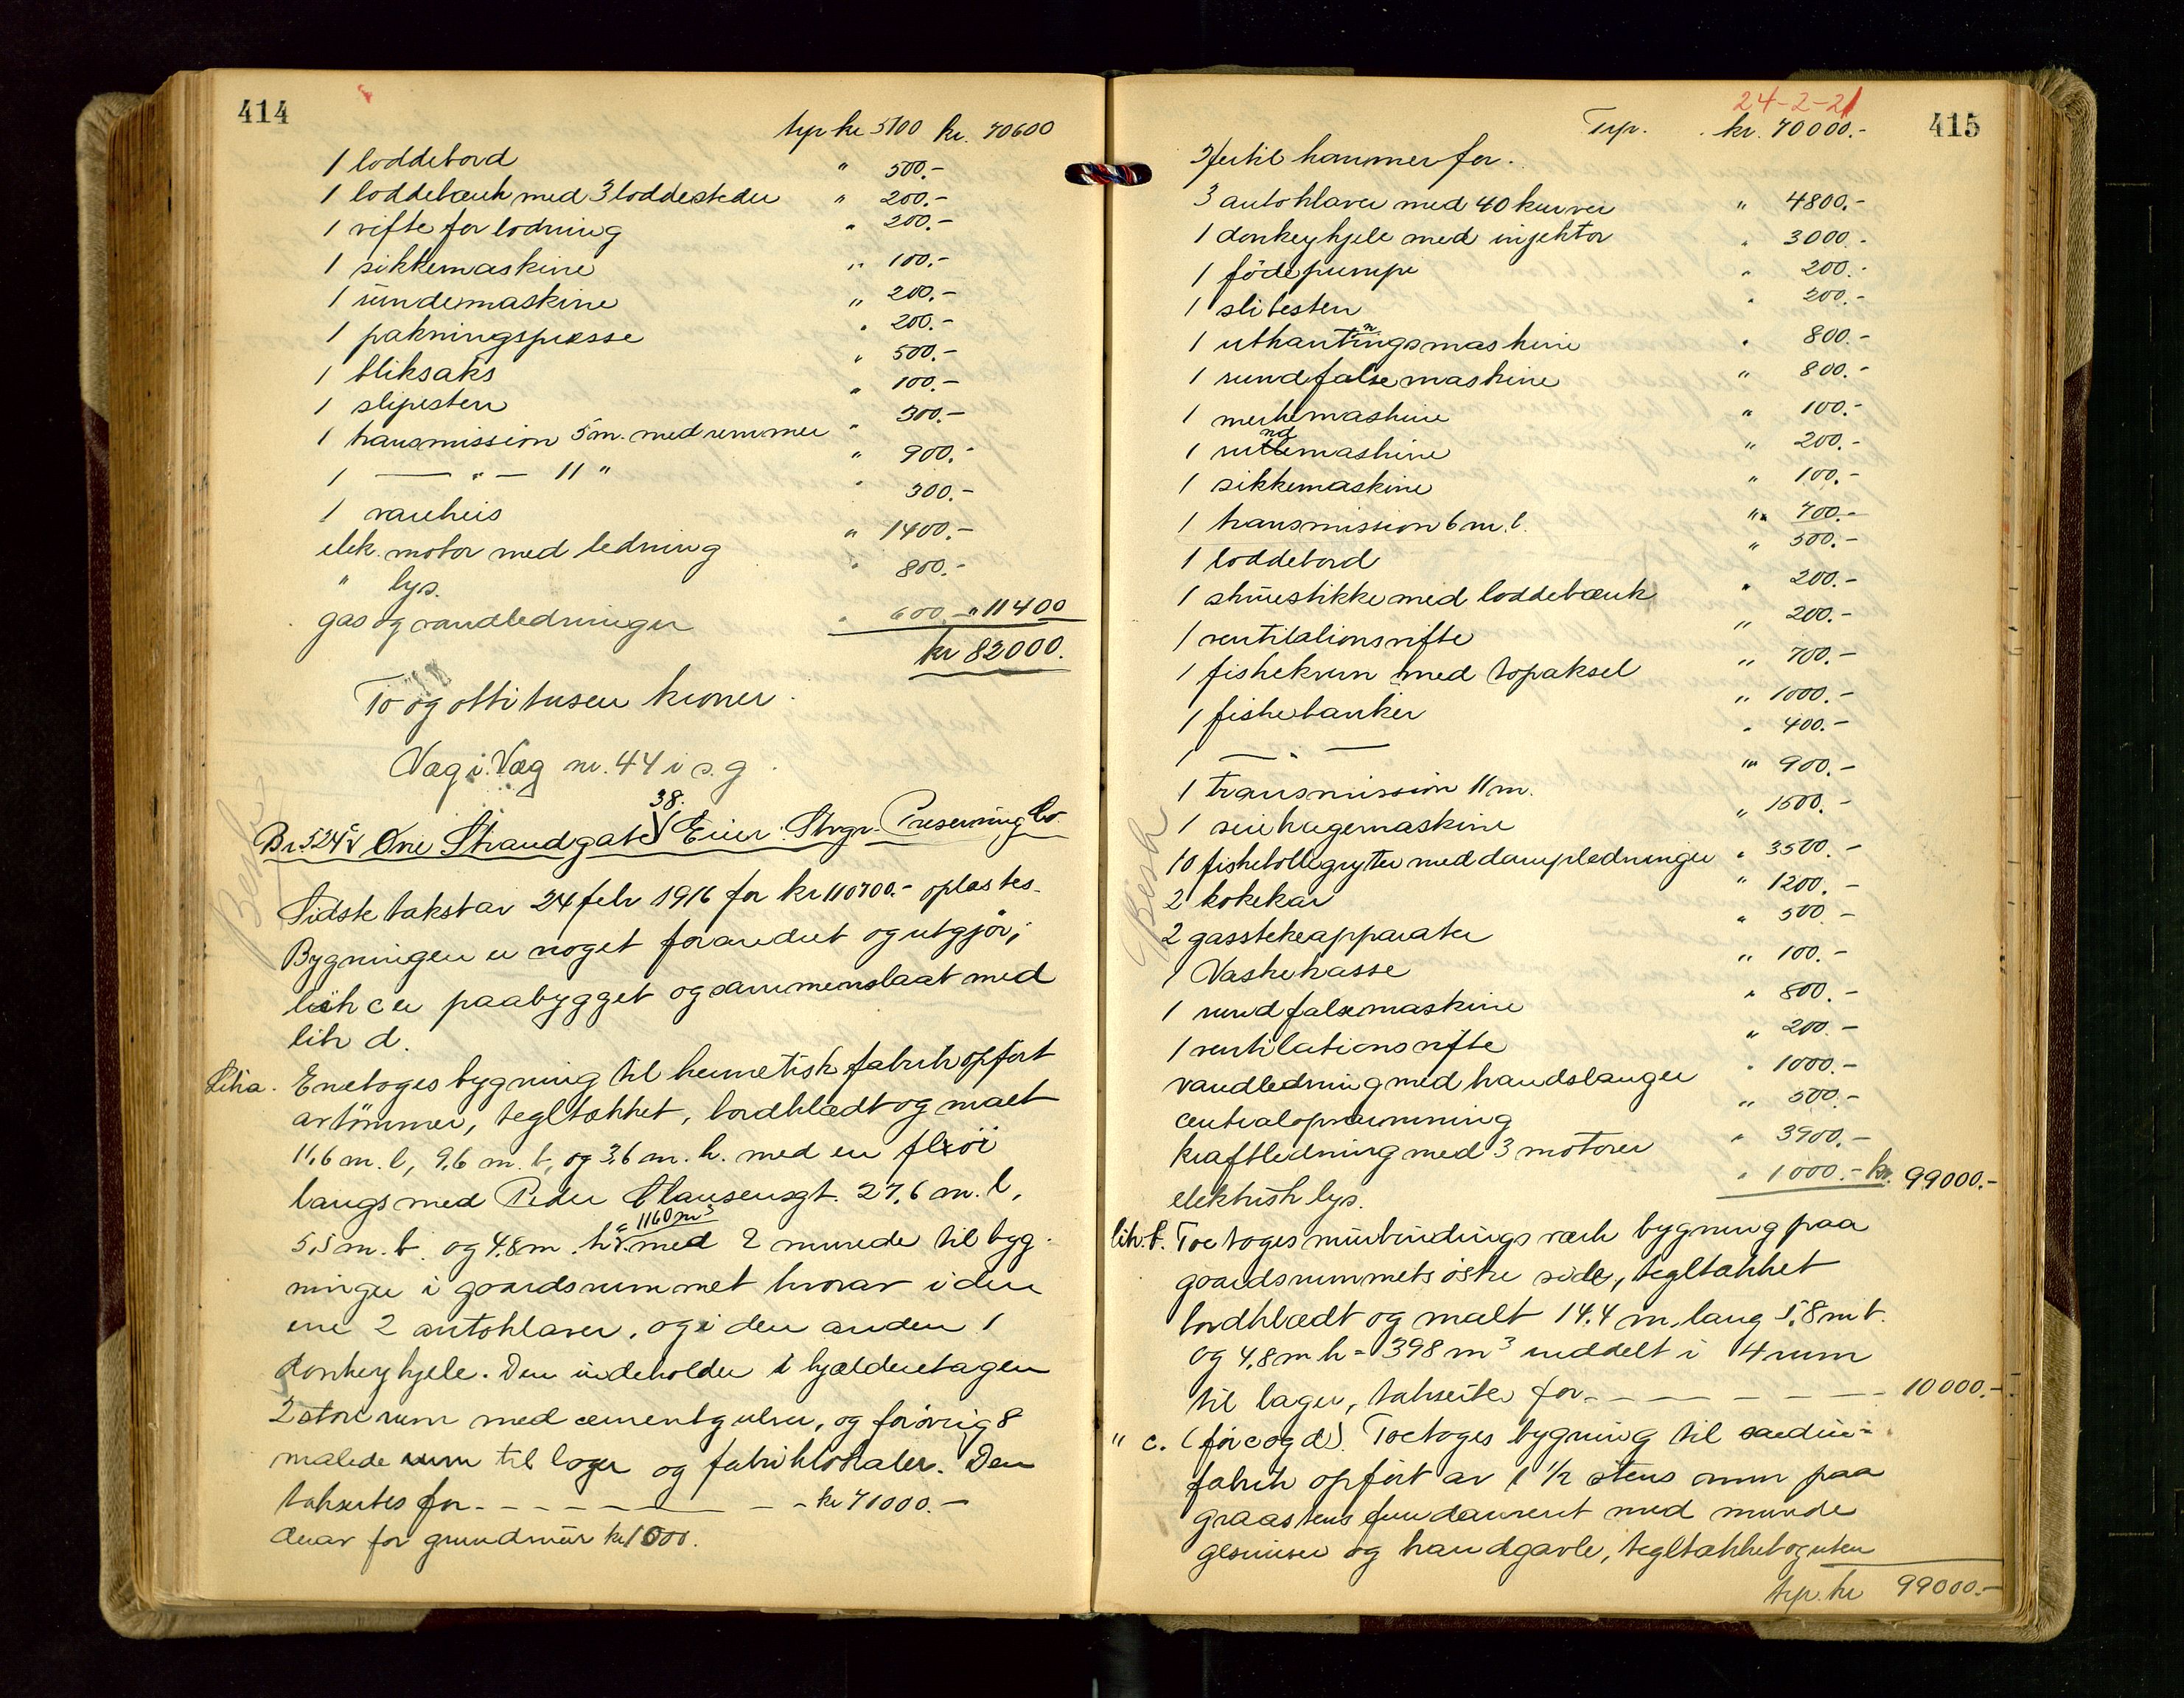 414
trp kr 5100 kr. 70600
1 loddebord " 500.-
1 loddebænk med 3 loddesteder " 200.-
1 vifte for lodning " 200.-
1 sikkemaskine " 100.-
1 rundemaskine " 200.-
1 pakningspresse " 200.-
1 bliksaks " 500.-
1 slipesten " 100.-
1 transmission 5 m. med remmer " 300.-
1 — " — 11 " " 900.-
1 vareheis " 300.-
elek. motor med ledning " 1400.-
" lys. " 800.-
gas og vandledninger " 600.- " 11400
kr 82000.
To og otti tusen kroner.
Væg i Væg nr. 44 i s. g.
Besk.
Br. 524c Øvre Strandgate 38. Eier: Stvgr. Preserving Co
Sidste takst av 24 febr 1916 for kr 110700.- oplæstes.
Bygningen er noget forandret og utgjør;
litr c er paabygget og sammenslaat med
litr d.
Litr a. Enetages bygning til hermetisk fabrik opført
av tömmer, tegltækket, bordklædt og malt
11,6 m. l, 9,6 m. b, og 3,6 m. h. med en fløi
langs med Peder Clausensgt. 27,6 m. l,
5,5 m. b. og 4,8 m. h. = 1160 m³ med 2 murede til byg-
ninger i gaardsrummet hvorav i den
ene 2 autoklaver, og i den anden 1
donkeykjele. Den indeholder i kjælderetagen
2 store rum med cementgulver, og forøvrig 8
malede rum til lager og fabriklokaler. Den
takseres for - - - - - - kr 71000.-
derav for grundmur kr 1000.
24-2-21
415
Trp. kr. 70000.-
Hertil kommer for.
3 autoklaver med 40 kurver " 4800.-
1 donkeykjele med injektor " 3000.-
1 fødepumpe " 200.-
1 slibesten " 200.-
1 utkantningsmaskine " 800.-
1 rundfalsemaskine " 800.-
1 merkemaskine " 100.-
1 rundemaskine " 200.-
1 sikkemaskine " 100.-
1 transmission 6 m. l. " 700.-
1 loddebord " 500.-
1 med loddebænk " 200.-
1 ventilationsvifte " 200.-
1 fiskekvern med topaksel " 700.-
1 fiskebanker " 1000.-
1 — " — " 400.-
1 transmission 11 m. " 900.-
1 maskine " 1500.-
10 fiskebollegryter med dampledninger " 3500.-
2 kokekar " 1200.-
2 gasstekeapparater " 500.-
1 Vaskekasse " 100.-
1 rundfalsemaskine " 800.-
1 ventilationsvifte " 200.-
vandledning med handslanger " 1000.-
centralopvarmning " 500.-
kraftledning med 3 motorer " 3900.-
elektrisk lys. " 1000.- kr. 99000.-
Besk
litr. b. Toetages murbindingsverk bygning paa
gaardsrummets östre side, tegltækket
bordklædt og malt 14,4 m. lang 5,8 m b.
og 4,8 m h = 398 m³ inddelt i 4 rum
til lager, takseres for - - - - - 10000.-
" c. (før c og d). Toetages bygning til sardin-
fabrik opført av 1 1/2 stens mur paa
graastens fundament med murede
gesimser og brandgavle, tegltækket og uten
trp. kr 99000.-